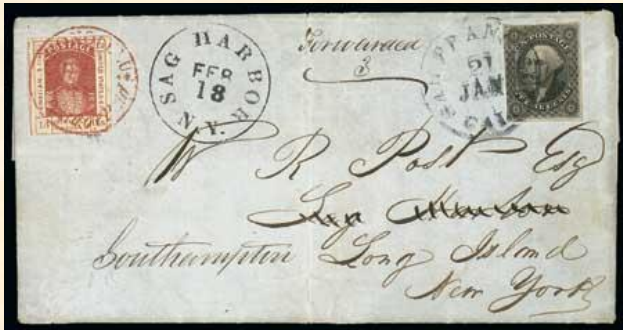 SAG HARBOR
FEB
18
N.Y.
Forwarded
3
SAN FRAN
21
JAN
CAL
POSTAGE
U.S. POSTAGE
W R Post Esq
Sag Harbor
Southampton Long Island
New York